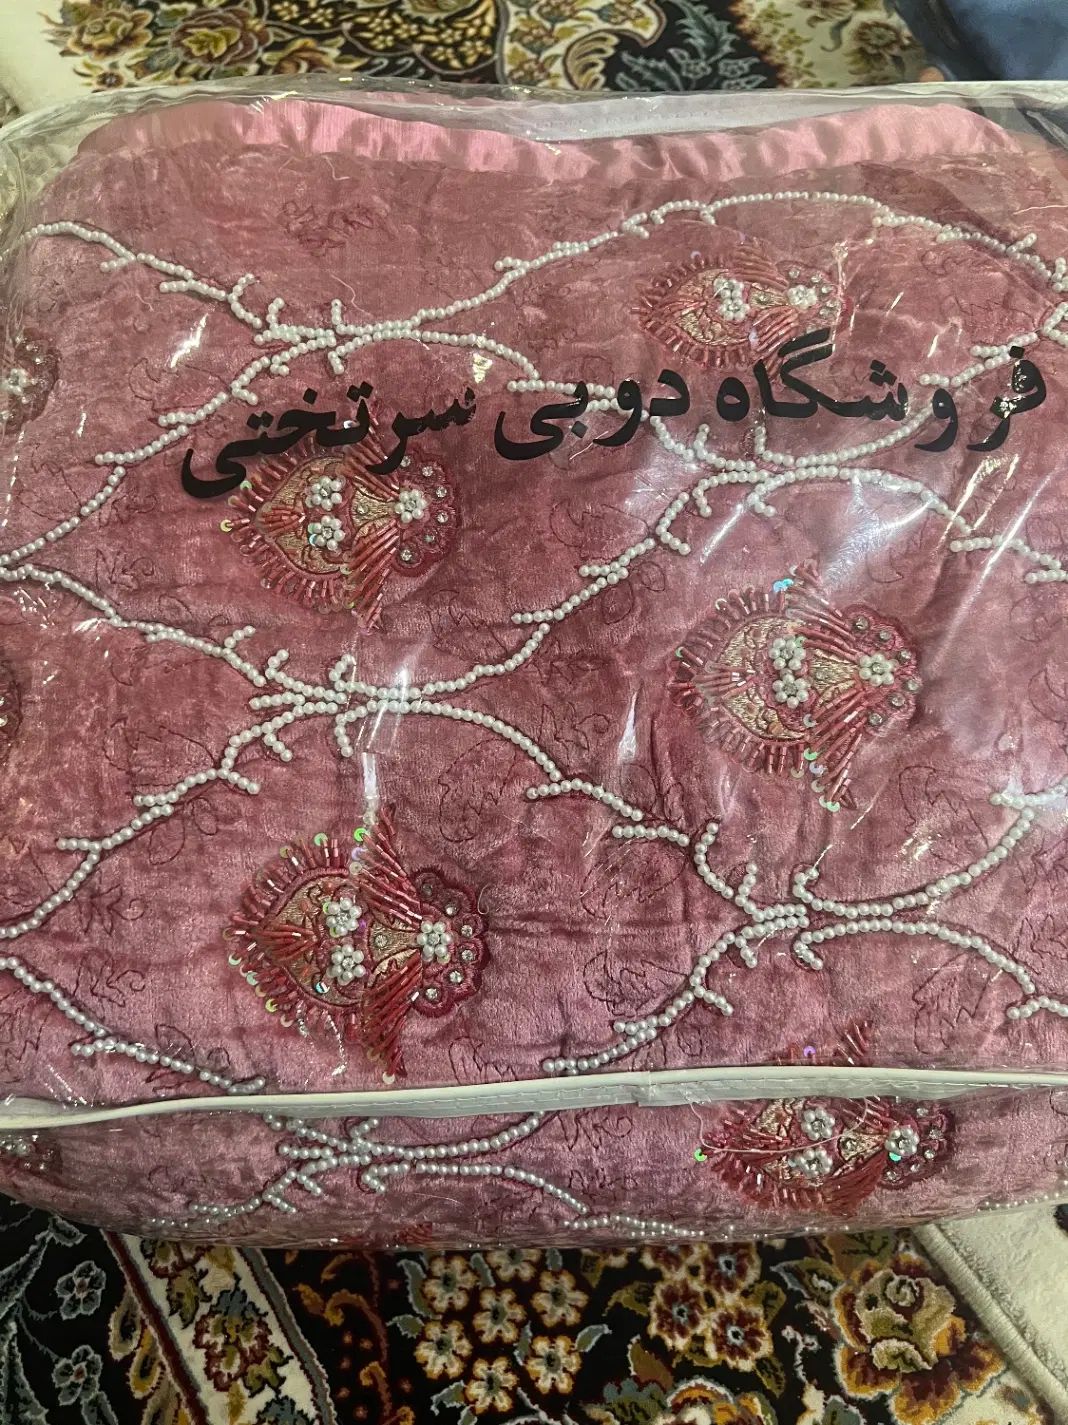 فروشگاه دوبی سرتختی